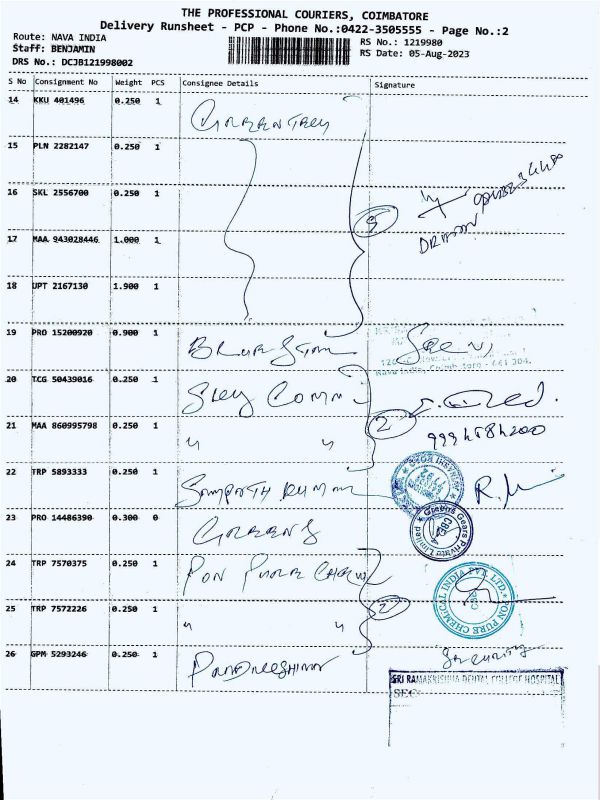 THE PROFESSIONAL COURIERS, COIMBATORE
Delivery Runsheet - PCP - Phone No.:0422-3505555 - Page No.:2
Route: NAVA INDIA
Staff: BENJAMIN
DRS No.: DCJB121998002
RS No.: 1219980
RS Date: 05-Aug-2023
S No Consignment No Weight PCS Consignee Details Signature
14 KKU 401496 0.250 1
15 PLN 2282147 0.250 1
16 SKL 2556700 0.250 1
5
17 MAA 943028446 1.000 1
18 UPT 2167130 1.900 1
19 PRO 15200920 0.900 1 Blue Star
Nava India, Coimbatore - 641 004.
20 TCG 50439016 0.250 1 Sky Comm
21 MAA 860995798 0.250 1 " "
2
22 TRP 5893333 0.250 1 Sampath Kumar
23 PRO 14486390 0.300 0 Greens
Greens Gears Private Limited
CBE
24 TRP 7570375 0.250 1 Pon Pure Chem
PON PURE CHEMICAL INDIA PVT. LTD.
25 TRP 7572226 0.250 1 " "
2
26 GPM 5293246 0.250 1
Security
SRI RAMAKRISHNA DENTAL COLLEGE HOSPITAL
SEC